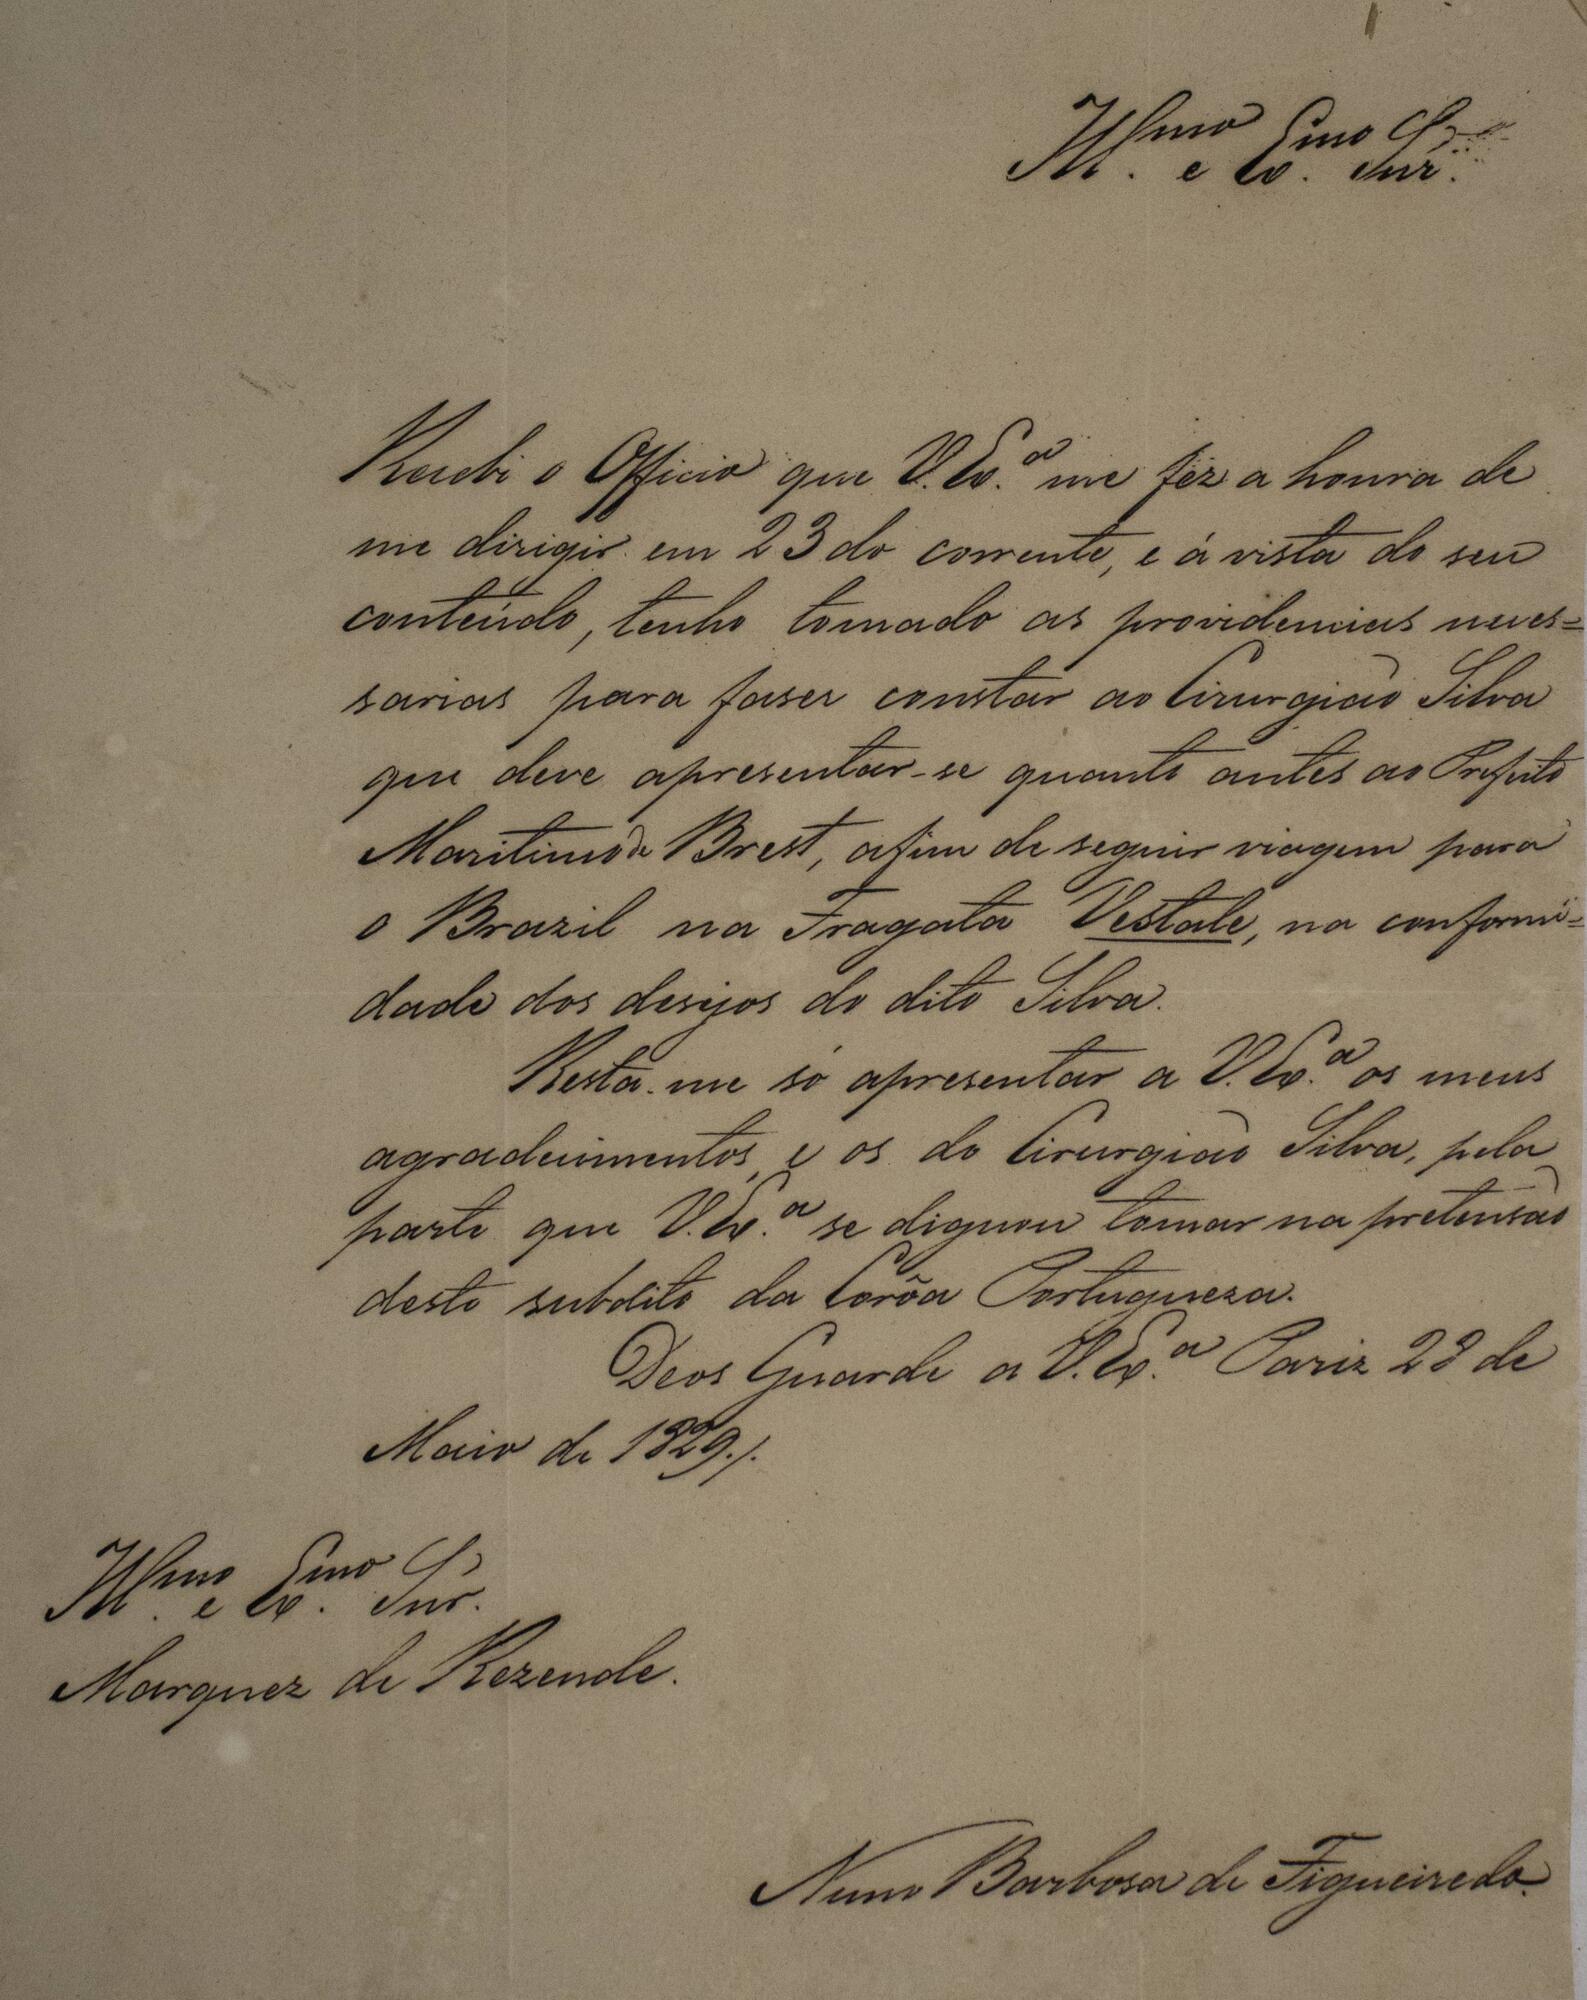 Illmo. e Exmo. Snr.
Recebi o Officio que V. Ex.ª me fez a honra de
me dirigir em 23 do corrente, e á vista do seu
conteúdo, tenho tomado as providencias neces=
sarias para faser constar ao Cirurgião Silva
que deve apresentar-se quanto antes ao Prefeito
Maritimo de Brest, afim de seguir viagem para
o Brazil na Fragata Vestale, na conformi=
dade dos desejos do dito Silva.
Resta-me só apresentar a V. Ex.ª os meus
agradecimentos, e os do Cirurgião Silva, pela
parte que V. Ex.ª se dignou tomar na pretensão
deste subdito da Corõa Portugueza.
Deos Guarde a V. Ex.ª Pariz 28 de
Maio de 1829./.
Illmo. e Exmo. Snr.
Marquez de Rezende.
Nuno Barbosa de Figueiredo.